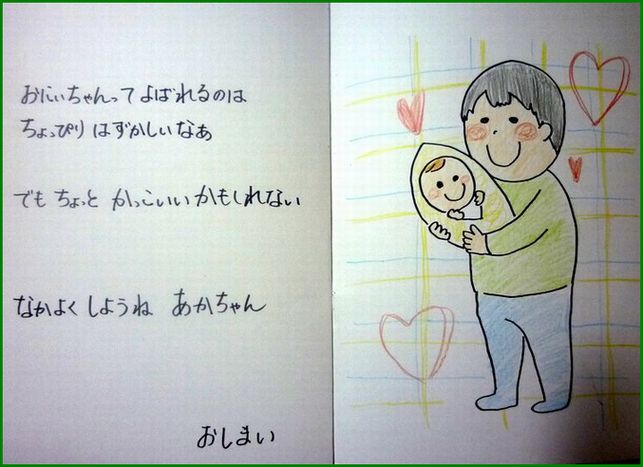 おにいちゃんってよばれるのは
ちょっぴりはずかしいなあ
でもちょっと かっこいいかもしれない
なかよくしようね あかちゃん
おしまい